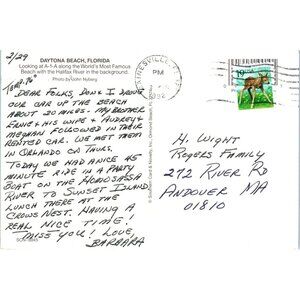 2/29
DAYTONA BEACH, FLORIDA
Looking at A-1-A along the World's Most Famous
Beach with the Halifax River in the background.
Photo by John Nyberg
DEAR FOLKS, DON & I DROVE
OUR CAR UP THE BEACH
ABOUT 20 MILES - MY BROTHER
ERNIE & HIS WIFE & AUDREY &
FOLLOWED IN THEIR
RENTED CAR. WE MET THEM
IN ORLANDO ON THURS.
TODAY WE HAD A NICE 45
MINUTE RIDE IN A PARTY
BOAT ON THE HOMOSASSA
RIVER TO SUNSET ISLAND,
LUNCH THERE AT THE
CROWS NEST. HAVING A
REAL NICE TIME!
MISS YOU! LOVE,
BARBARA
PM
1992
19
H. WIGHT
ROGERS FAMILY
272 RIVER RD
ANDOVER MA
01810